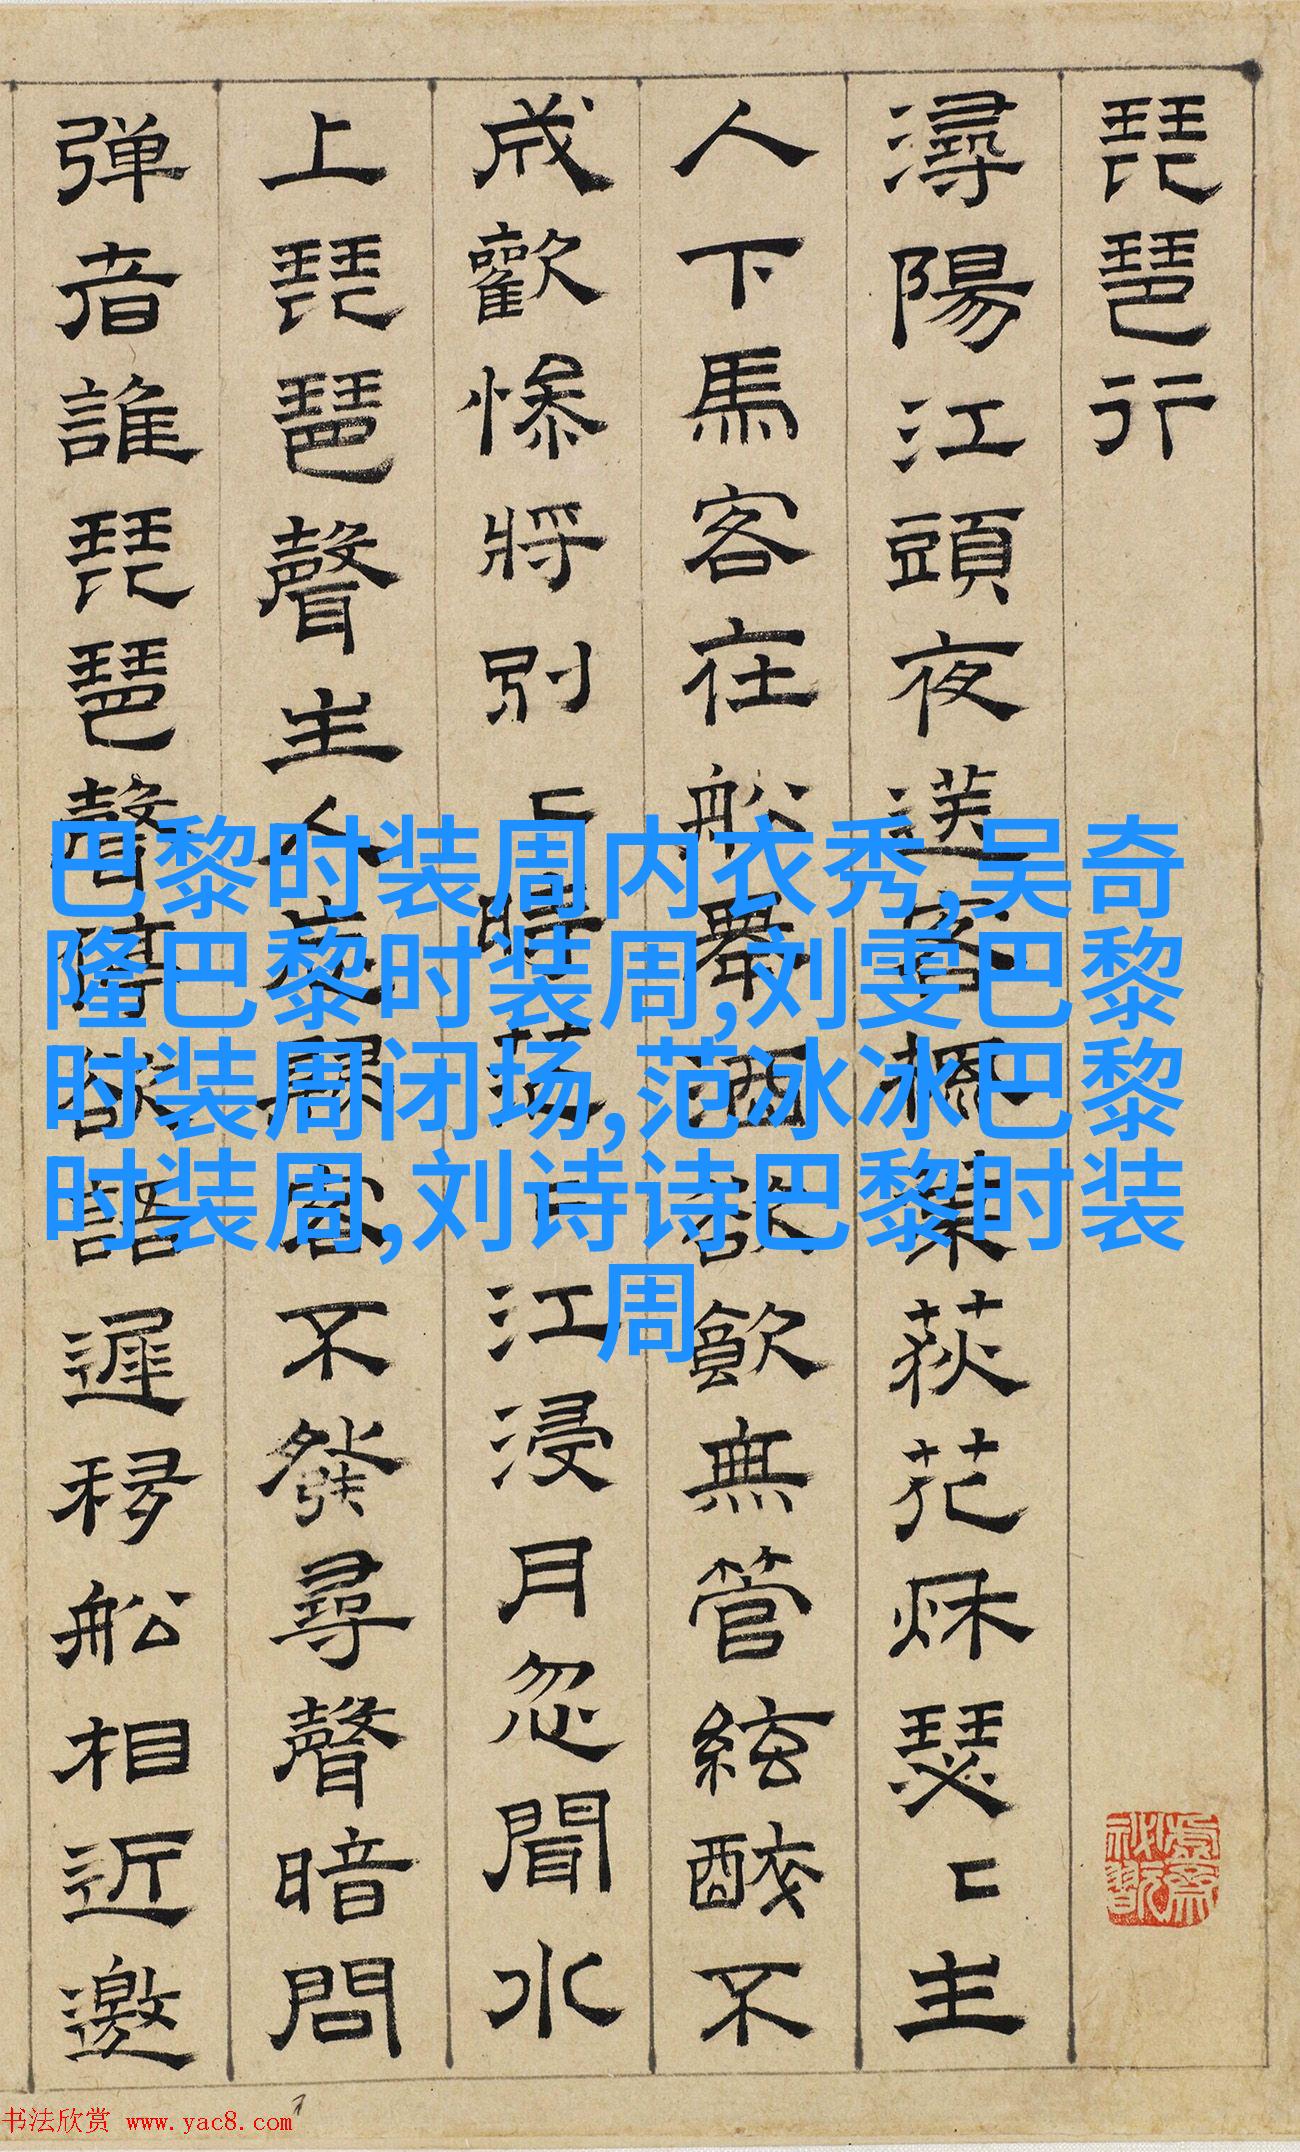 琵琶行
潯陽江頭夜送客楓葉荻花秌瑟〻主
人下馬客在船舉酒欲飲無管絃醉不
成歡慘將別〻時茫〻江浸月忽聞水
上琵琶聲主人忘歸客不發尋聲暗問
弹者誰琵琶聲停欲語遲移船相近邀
巴黎时装周内衣秀,吴奇
隆巴黎时装周,刘雯巴黎
时装周闭场,范冰冰巴黎
时装周,刘诗诗巴黎时装
周
书法欣赏 www.yac8.com